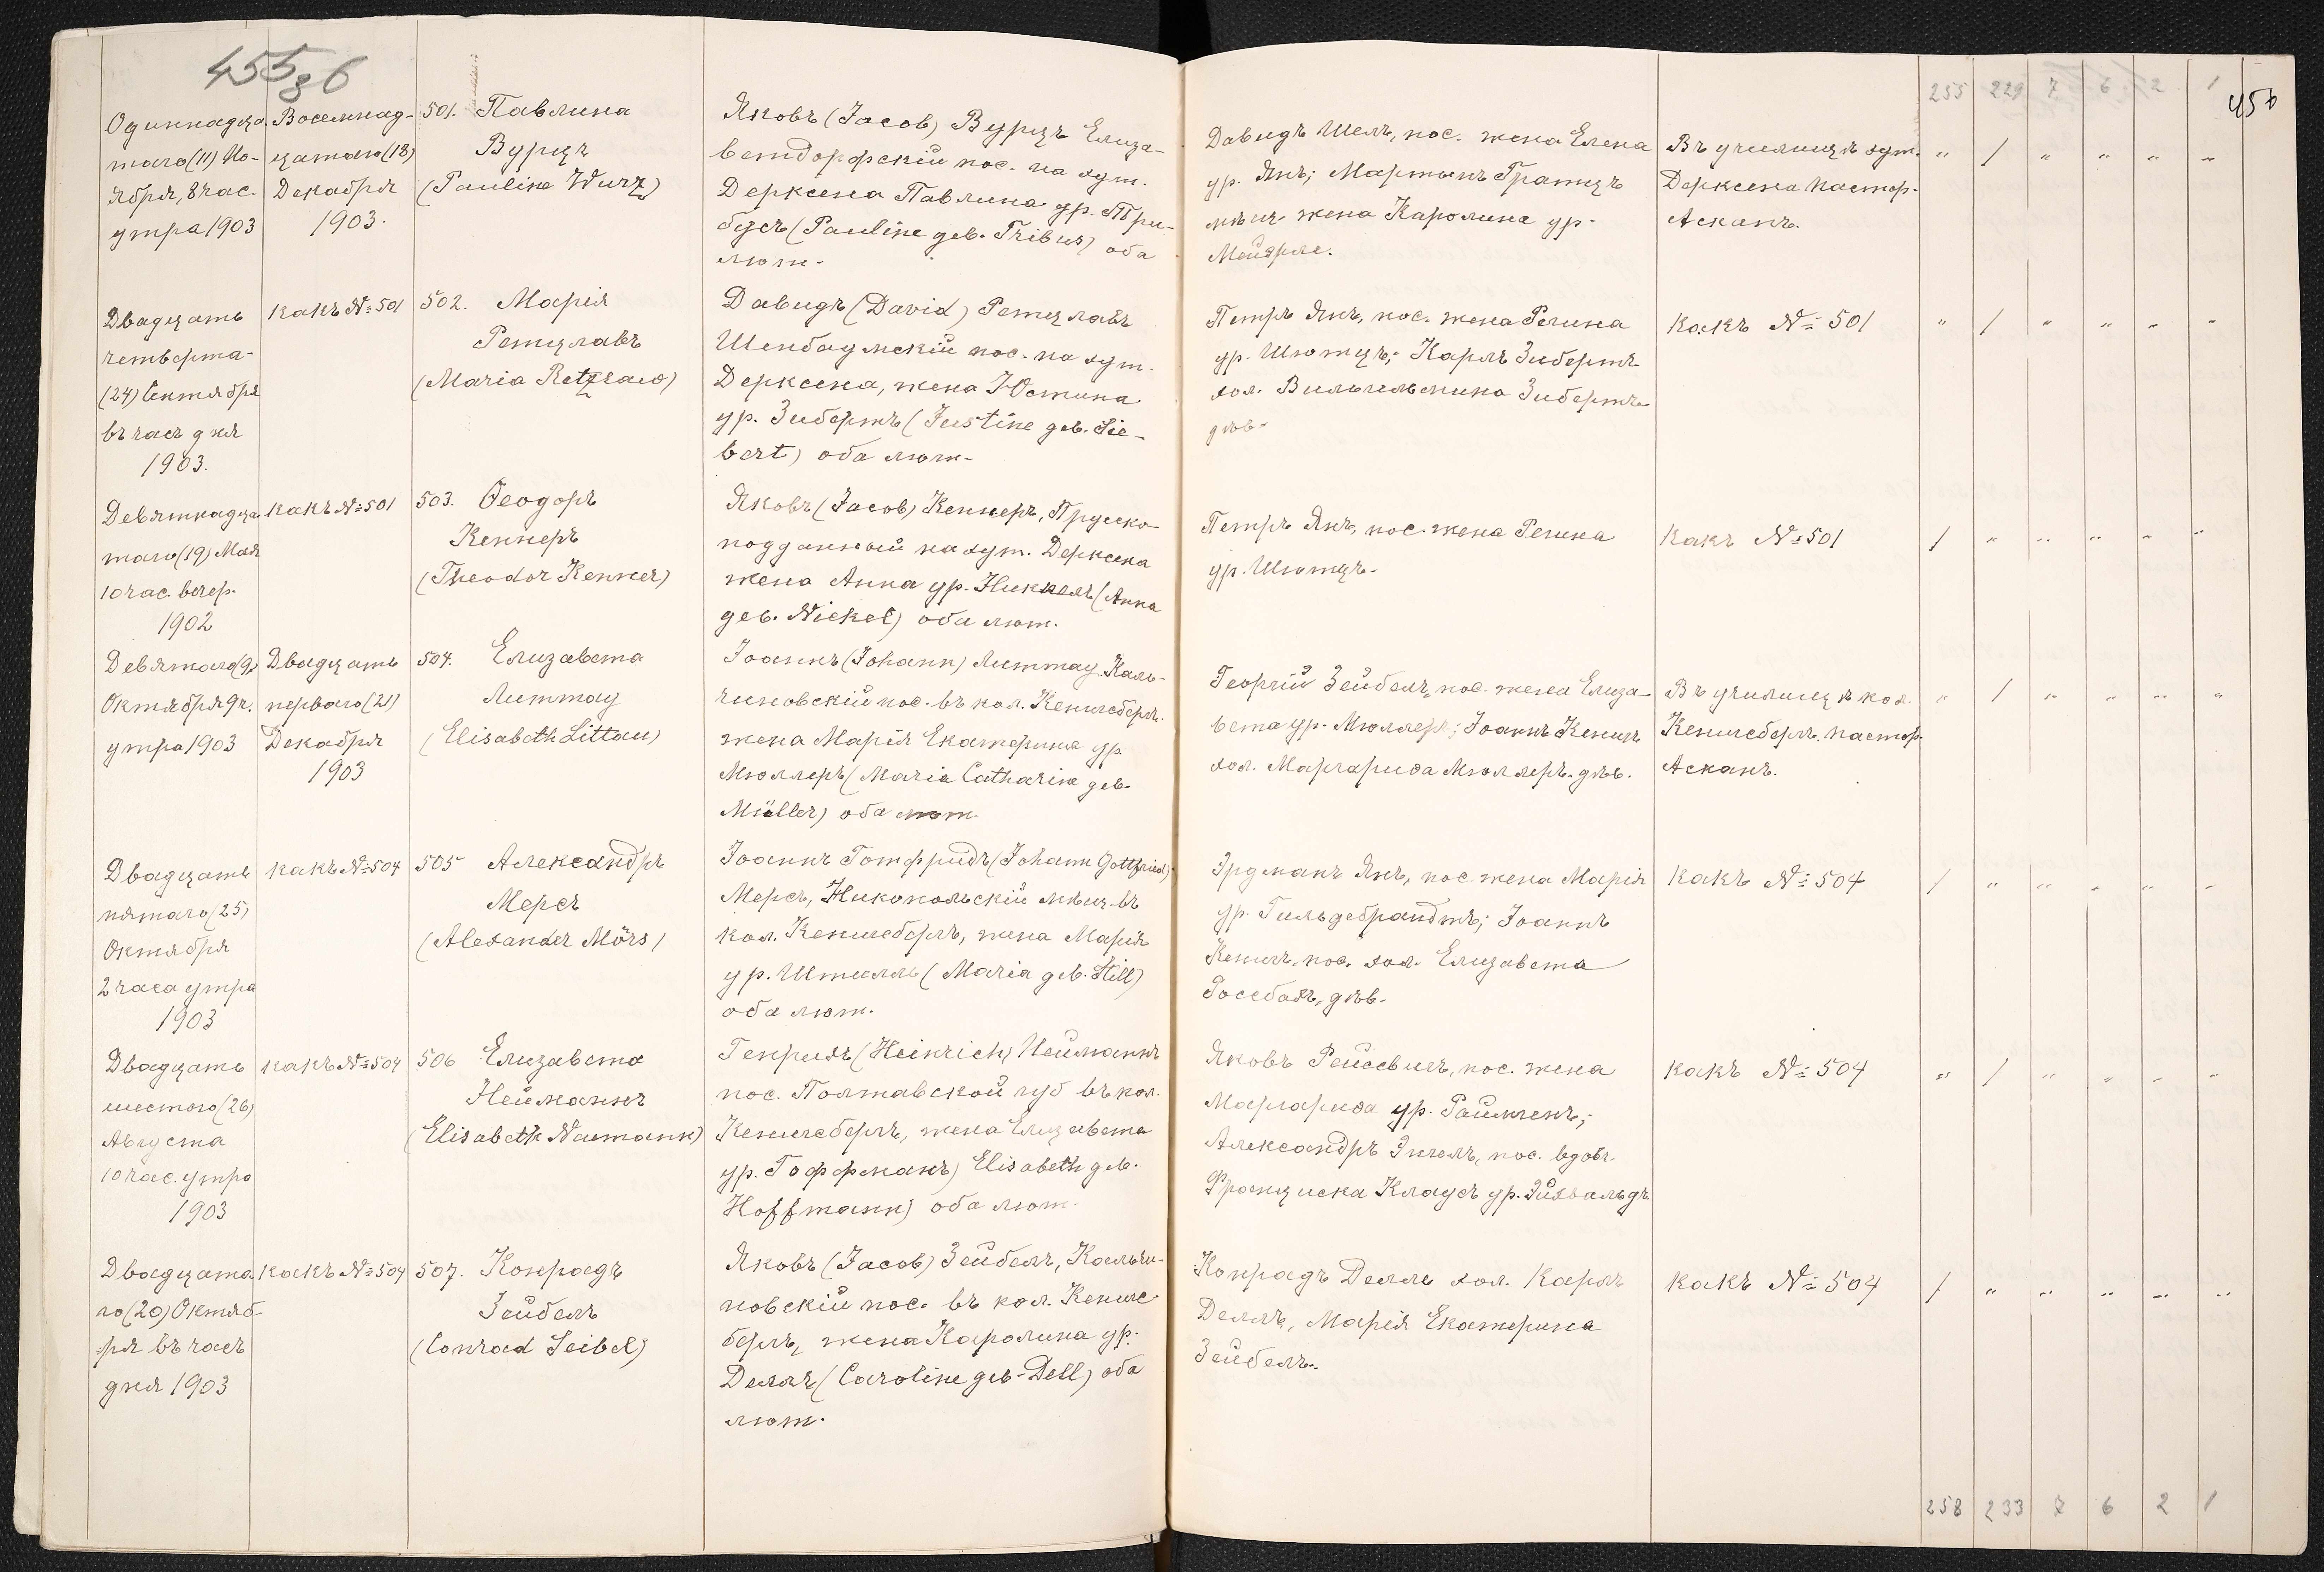 455 об
255 229 7 6 2 1
456
Одиннадца-
таго (11) Но-
ября, 8 час.
утра 1903
Восемнад-
цатаго (18)
Декабря
1903.
501. Павлина
Вурцъ
(Pauline Wurz)
Яковъ (Jacob) Вурцъ Елиза-
ветдорфскій пос. на хут.
Дерксена Павлина ур. Три-
бусъ (Pauline geb. Tribus) оба
лют.
Давидъ Шель, пос. жена Елена
ур. Янъ; Мартынъ Гратцъ
мѣщ. жена Каролина ур.
Мейерле.
Въ училищѣ хут.
Дерксена пастор.
Асканъ.
" 1 " " " "
Двадцать
четверта-
(24) Сентября
въ часъ дня
1903.
какъ № 501
502. Марія
Ретцлавъ
(Maria Retzlaw)
Давидъ (David) Ретцлавъ
Шенбаумскій пос. на хут.
Дерксена, жена Юстина
ур. Зибертъ (Justine geb. Sie-
bert) оба лют.
Петръ Янъ, пос. жена Регина
ур. Шютцъ; Карлъ Зибертъ
хол. Вильгельмина Зибертъ
дѣв.
какъ № 501
" 1 " " " "
Девятнадца-
таго (19) Мая
10 час. вечер.
1902
какъ № 501
503. Ѳеодоръ
Кеннеръ
(Theodor Kenner)
Яковъ (Jacob) Кеннеръ, Прусско-
подданный на хут. Дерксена
жена Анна ур. Никкель (Anna
geb. Nickel) оба лют.
Петръ Янъ, пос. жена Регина
ур. Шютцъ.
какъ № 501
1 " " " " "
Девятаго (9)
Октября 9 ч.
утра 1903
Двадцать
перваго (21)
Декабря
1903
504. Елизавета
Литтау
(Elisabeth Littau)
Іоаннъ (Johann) Литтау Каль-
чиновскій пос. въ кол. Кенигсбергъ.
жена Марія Екатерина ур
Мюллеръ (Maria Catharina geb.
Müller) оба лют.
Георгій Зейбель, пос. жена Елиза-
вета ур. Мюллеръ; Іоаннъ Кенигъ
хол. Маргарида Мюллеръ. дѣв.
Въ училищѣ кол.
Кенигсбергъ. пастор.
Асканъ.
" 1 " " " "
Двадцать
пятаго (25)
Октября
2 часа утра
1903
какъ № 504
505 Александръ
Мерсъ
(Alexander Mörs)
Іоаннъ Готфридъ (Johann Gottfried)
Мерсъ, Никопольскій мѣщ. въ
кол. Кенигсбергъ, жена Марія
ур. Штилль (Maria geb. Still)
оба лют.
Эрдманъ Янъ, пос жена Марія
ур. Гильдебрандтъ; Іоаннъ
Кенигъ, пос. хол. Елизавета
Россбахъ, дѣв.
какъ № 504
1 " " " " "
Двадцать
шестого (26)
Августа
10 час. утра
1903
какъ № 504
506 Елизавета
Нейманнъ
(Elisabeth Neumann)
Генрихъ (Heinrich) Нейманнъ
пос. Полтавской губ въ кол.
Кенигсбергъ, жена Елизавета
ур. Гоффманъ) Elisabeth geb.
Hoffmann) оба лют.
Яковъ Рейсвихъ, пос. жена
Маргарида ур. Раймхенъ;
Александръ Энгель, пос. вдов.
Франциска Клаусъ ур. Эйхвальдъ
какъ № 504
" 1 " " " "
Двадцата-
го (20) Октяб-
ря въ часъ
дня 1903
какъ № 504
507. Конрадъ
Зейбель
(Conrad Seibel)
Яковъ (Jacob) Зейбель, Кальчи-
новскій пос. въ кол. Кенигс-
бергъ, жена Каролина ур.
Деллъ (Caroline geb. Dell) оба
лют.
Конрадъ Делль хол. Карлъ
Деллъ, Марія Екатерина
Зейбель.
какъ № 504
1 " " " " "
258 233 7 6 2 1